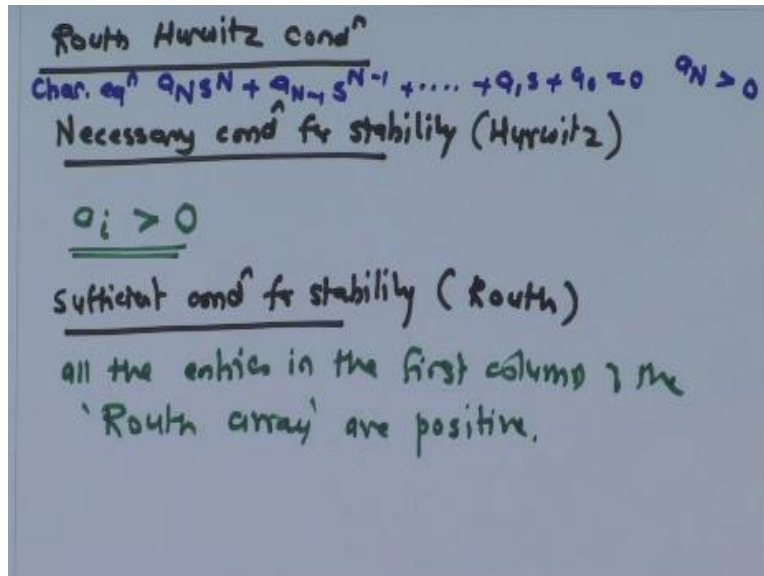 Routh Hurwitz condⁿ
Char. eqⁿ a_N s^N + a_{N-1} s^{N-1} + .... + a_1 s + a_0 = 0 a_N > 0
Necessary condⁿ for stability (Hurwitz)
a_i > 0
Sufficient condⁿ for stability (Routh)
all the entries in the first column of the
'Routh array' are positive.